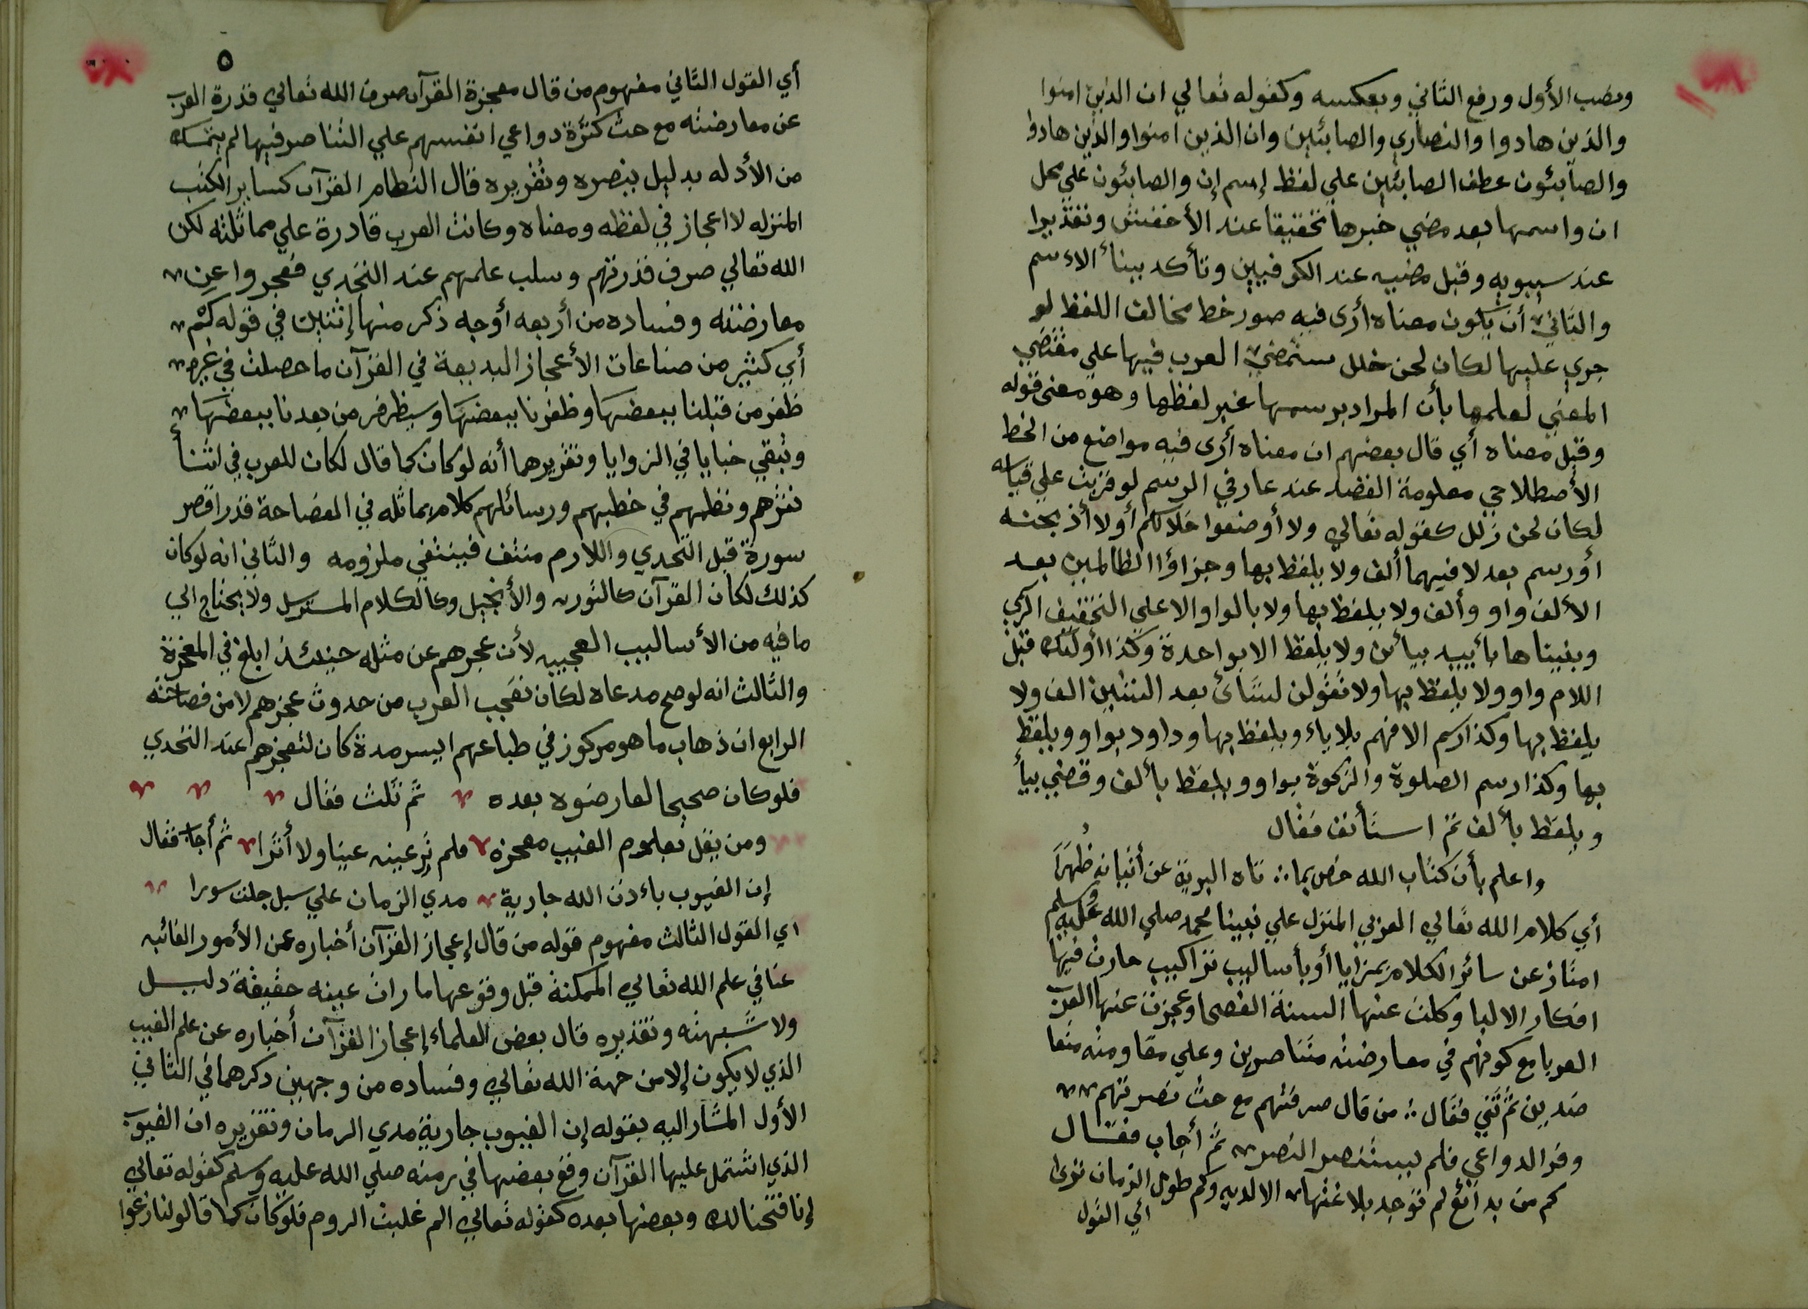 ونصب الأول ورفع الثاني وبعكسه وكقوله تعالي ان الذين امنوا
والذين هادوا والنصاري والصابئين وان الذين امنوا والذين هادوا
والصابئون عطف الصابئين علي لفظ إسم إن والصابئون علي محل
ان واسمها بعد مضي خبرها تحقيقا عند الأخفش وتقديرا
عند سيبويه وقبل مضيه عند الكوفيين وتأكد ببنأ الاءسم
والثاني أن يكون معناه أرى فيه صور خط تخالف اللفظ لو
جري عليها لكان لحن خلل ستمضي العرب فيها علي مقتضي
المعني لعلمها بأن المراد برسمها غير لفظها وهو معنى قوله
وقيل معناه أي قال بعضهم ان معناه أرى فيه مواضع من الخط
الأصطلاحي معلومة القصد عند عارفي الرسم لو قريت علي قياسه
لكان لحن زلل كقوله تعالي ولا أوضعوا خلالكم أولا أذبحنه
أو رسم بعد لا فيهما ألف ولا يلفظ بها وجزاؤا الظالمين بعد
الألف واو وألف ولا يلفظ بها ولا بالواو الا علي التخفيف الرسمي
وبنيناها بأييد بيائن ولا يلفظ الا بواحدة وكذا أولئك قبل
اللام واو ولا يلفظ بها ولا تقولن لشائ بعد الشين الف ولا
يلفظ بها وكذا رسم الافهم بلا ياء ويلفظ بها وداود بواو ويلفظ
بها وكذا رسم الصلوة والزكوة بواو ويلفظ بألف وقضي بيأ
ويلفظ بألف ثم استأنف فقال
واعلم بأن كتاب الله خص بما ∴ تاه البرية عن أتيانه ظهرا
أي كلام الله تعالي العربي المنزل علي نبينا محمد صلي الله عليه وسلم
امتاز عن سائر الكلام بمزايا أو بأساليب تراكيب حارت فيها
افكار الالبا وكلت عنها السنة الفصحا وعجزت عنها العرب
العربا مع كونهم في معارضته متناصرين وعلي مقاومته متعا
ضدين ثم ثني فقال ∴ من قال صرفتهم مع حث نصرتهم
وفر الدواعي فلم يستنصر النصرا ثم أجاب فقال
كم من بدائع لم توجد بلاغتها الا لديه وكم طول الزمان ترى
أي القول
٥
أي القول الثاني مفهوم من قال معجزة القرآن صرف الله تعالي قدرة العرب
عن معارضته مع حث كثرة دواعي انفسهم علي التناصر فيها لم يتمسك
من الأدله بدليل ينصره وتقريره قال النظام القرآن كساير الكتب
المنزله لا اعجاز في لفظه ومعناه وكانت العرب قادرة علي مماثلته لكن
الله تعالي صرف قدرتهم وسلب علمهم عند التحدي فعجروا عن
معارضته وفساده من أربعه أوجه ذكر منها إثنين في قوله كم
أي كثير من صناعات الأعجاز البديعة في القرآن ما حصلت في غيره
ظفر من قبلنا ببعضها وظفرنا ببعضها وسيظرفر من بعدنا ببعضها
وتبقي خبايا في الزوايا وتقريرهما أنه لو كان كما قال لكان للعرب في اثنأ
نثرهم ونظمهم في خطبهم ورسائلهم كلام يماثله في الفصاحة قدر اقصر
سورة قبل التحدي واللازم منتف فينتفي ملزومه والثاني انه لو كان
كذلك لكان القرآن كالتورىه والأنجيل وكالكلام المسترسل ولا يحتاج الي
ما فيه من الأساليب العجيبه لأن عجزهم عن مثله حينئذ ابلغ في المعجزة
والثالث انه لو صح مدعاه لكان تعجب العرب من حدوث عجزهم لا من فصاحته
الرابع ان ذهاب ما هو مركوز في طباعهم ايسر مدة كان لتعجزهم عند التحدي
فلو كان صحيحا لعارضوه بعده ثم ثلث فقال
ومن يقل بعلوم الغيب معجزه فلم نر عينه عينا ولا أثرا ثم أجاب فقال
إن الغيوب باءذن الله جارية مدي الزمان علي سبل جلت سورا
اي القول الثالث مفهوم قوله من قال إعجاز القرآن أخباره عن الأمور الغائبه
عنا في علم الله تعالي الممكنة قبل وقوعها ما رات عينه حقيقة دليل
ولا شبهته وتقديره قال بعض العلماء إعجاز القرآن أخباره عن علم الغيب
الذي لا يكون إلا من جهة الله تعالي وفساده من وجهين ذكرهما في الثاني
الأول المشار اليه بقوله إن الغيوب جارية مدي الزمان وتقريره ان الغيوب
الذي اشتمل عليها القرآن وقع بعضها في زمنه صلي الله عليه وسلم كقوله تعالي
إنا فتحنا لك وبعضها بعده كقوله تعالي الم غلبت الروم فلو كان كما قالو لنازعوا